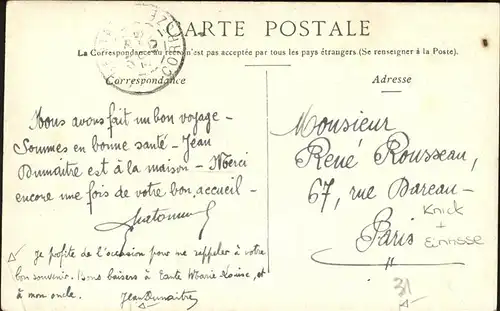 CARTE POSTALE
La Correspondance au recto n'est pas acceptée par tous les pays étrangers. (Se renseigner à la Poste).
Correspondance
Adresse
CORRÈZE
Nous avons fait un bon voyage –
Sommes en bonne santé – Jean
Dumaitre est à la maison – Merci
encore une fois de votre bon accueil –
Je profite de l'occasion pour me rappeler à votre
bon souvenir. Bons baisers à Tante Marie Louise, et
à mon oncle. Jean Dumaitre
Monsieur
René Rousseau,
67, rue Dareau –
Paris
"
Knick
+
Einrisse
31